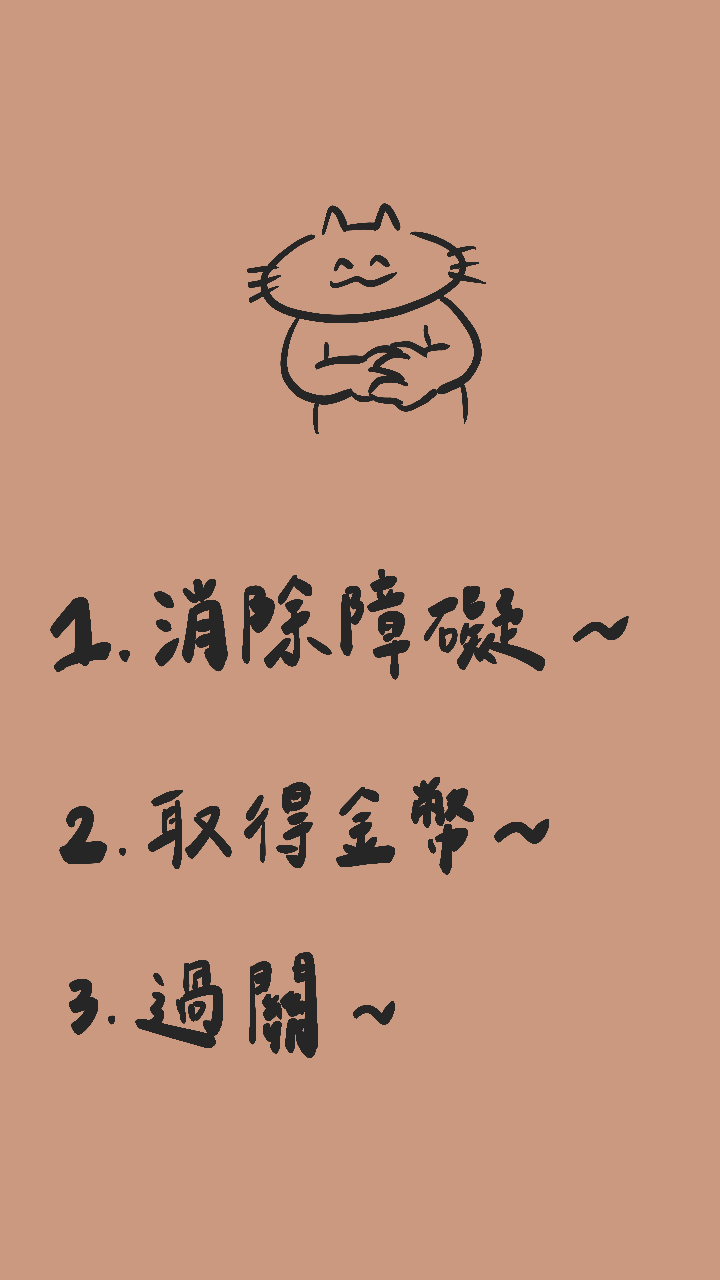 1.消除障礙~
2.取得金幣~
3.過關~